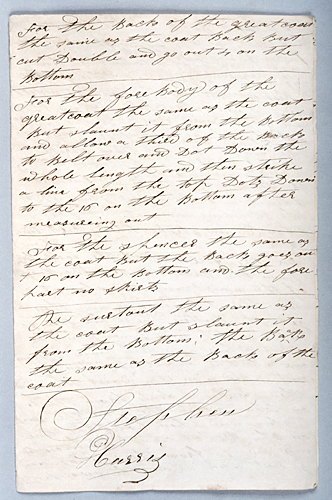 For the Back of the greatcoat
the same as the coat Back But
cut Double and go out on the
Bottom
For the foreBody of the
greatcoat the same as the coat
But slaunt it from the Bottom
and allow a third of the Back
to Bolt over and Dot Down the
whole length and then strike
a line from the top Dots Down
to the 16 on the Bottom after
measureing out
For the spencer the same as
the coat But the Back goes out
16 on the Bottom and the fore
part no skirt
the surtout the same as
the coat But slaunt it
from the Bottom: the Back
the same as the Back of the
coat
Stephen
Harris